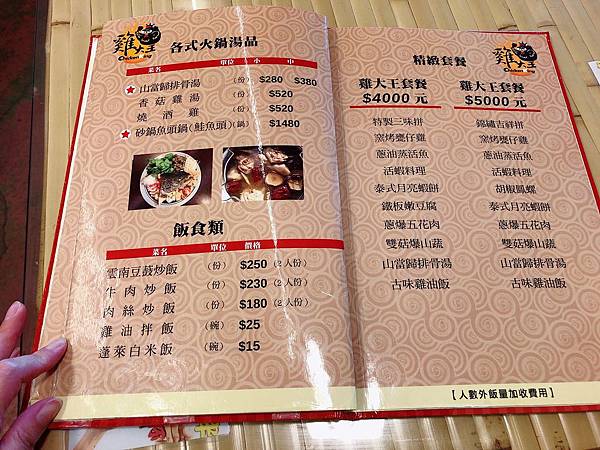 雞大王
Chicken King
各式火鍋湯品
菜名 單位 小 中
山當歸排骨湯 (份) $280 $380
香菇雞湯 (份) $520
燒酒雞 (份) $520
砂鍋魚頭鍋(鮭魚頭) (鍋) $1480
飯食類
菜名 單位 價格
雲南豆豉炒飯 (份) $250 (2人份)
牛肉炒飯 (份) $230 (2人份)
肉絲炒飯 (份) $180 (2人份)
雞油拌飯 (碗) $25
蓬萊白米飯 (碗) $15
雞大王
精緻套餐
雞大王套餐
$4000元
特製三味拼
窯烤甕仔雞
蔥油蒸活魚
活蝦料理
泰式月亮蝦餅
鐵板嫩豆腐
蔥爆五花肉
雙菇爆山蔬
山當歸排骨湯
古味雞油飯
雞大王套餐
$5000元
錦繡吉祥拼
窯烤甕仔雞
蔥油蒸活魚
活蝦料理
胡椒鳳螺
泰式月亮蝦餅
蔥爆五花肉
雙菇爆山蔬
山當歸排骨湯
古味雞油飯
【人數外飯量加收費用】